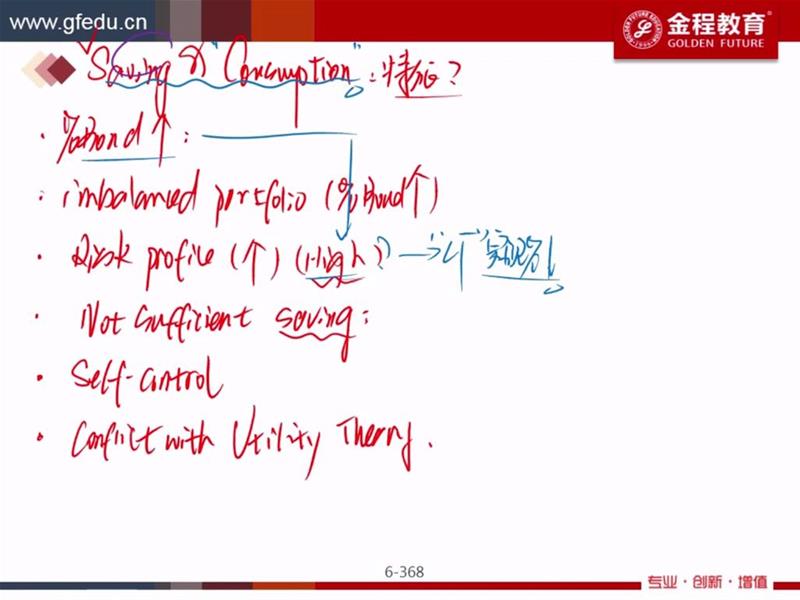 www.gfedu.cn
金程教育
GOLDEN FUTURE
"Saving" & "Consumption": 特征?
· % Bond ↑ :
· imbalanced portfolio (% Bond ↑)
· Risk profile (↑) (High?) → "个"
· Not sufficient saving:
· Self-control
· Conflict with Utility Theory.
6-368
专业·创新·增值